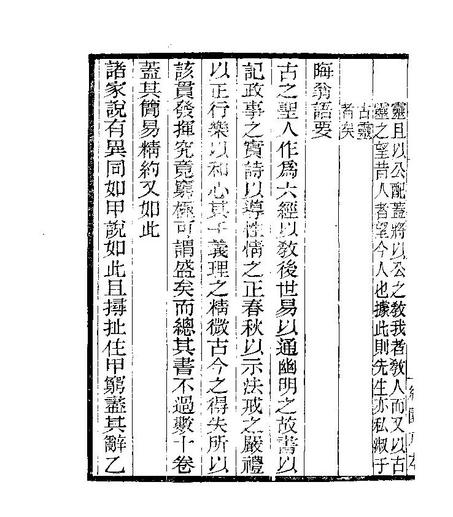 靈且以公配蓋將以公之敎我者敎人而又以古
靈之望昔人者望今人也據此則先生亦私淑于
古靈
者矣
晦翁語要
古之聖人作爲六經以敎後世易以通幽明之故書以
記政事之實詩以導性情之正春秋以示法戒之嚴禮
以正行樂以和心其于義理之精微古今之得失所以
該貫發揮究竟窮極可謂盛矣而總其書不過數十卷
蓋其簡易精約又如此
諸家說有異同如甲說如此且撏扯住甲窮盡其辭乙